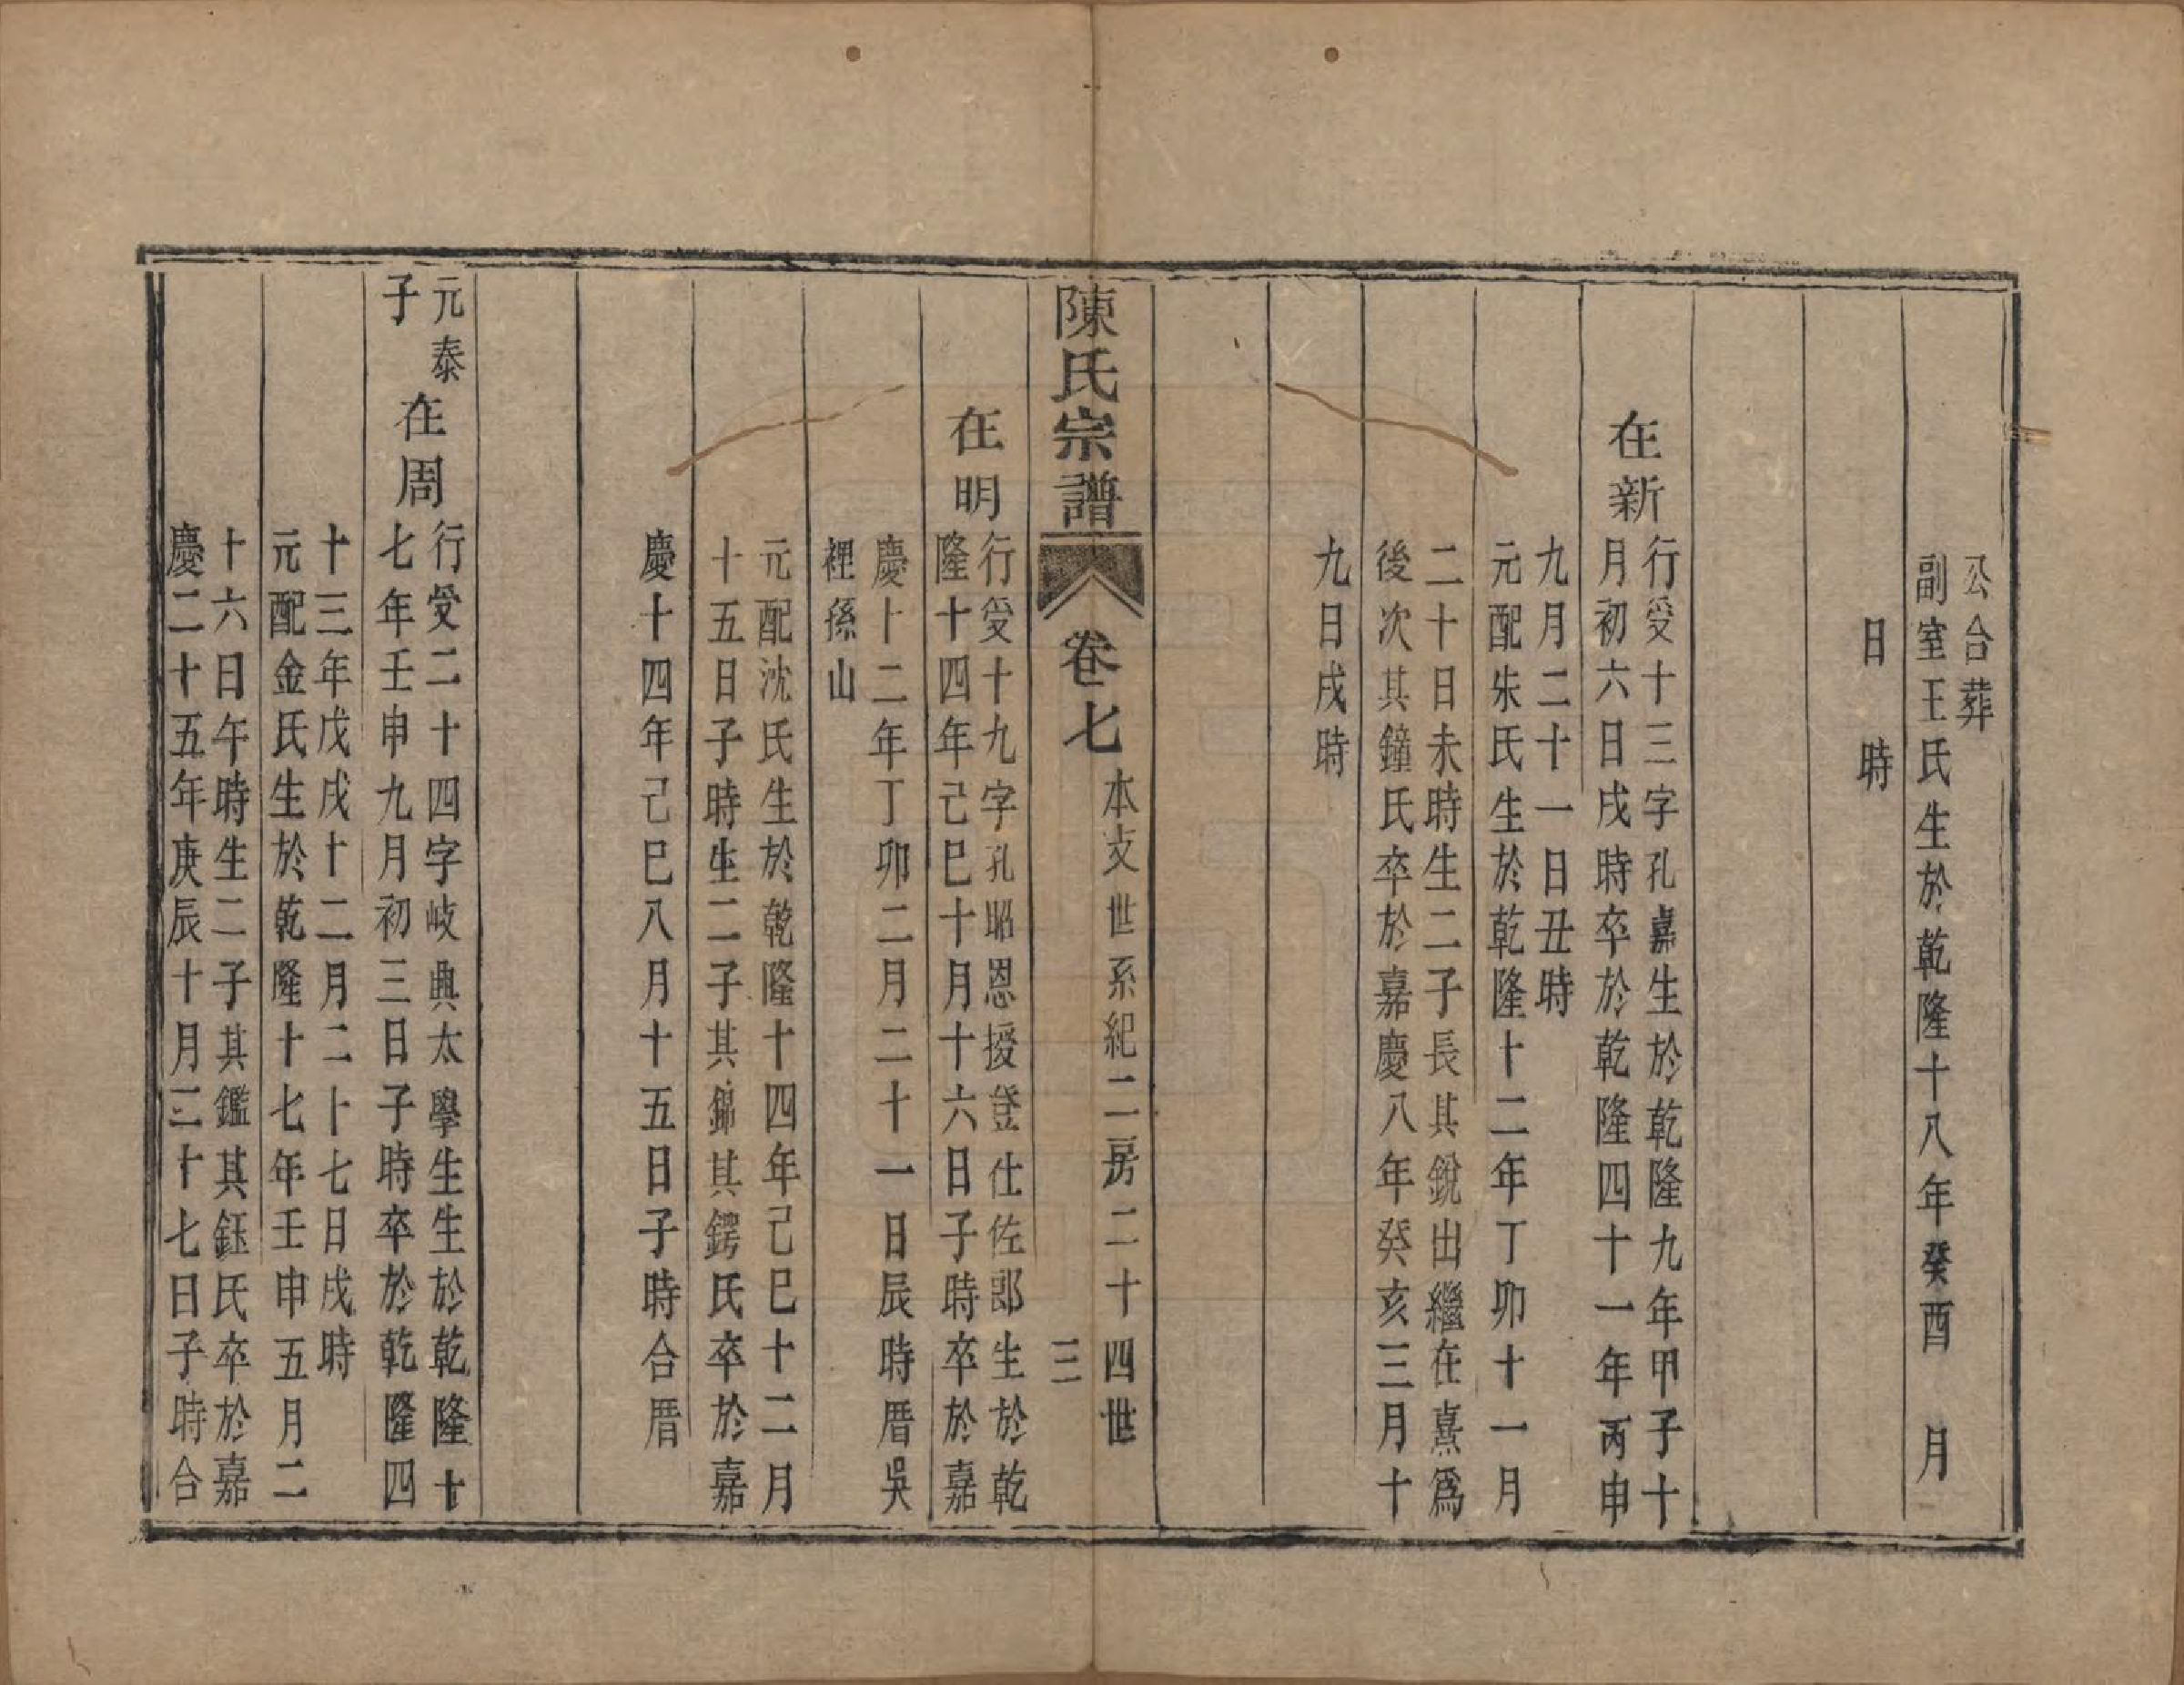 公合葬
副室王氏生於乾隆十八年癸酉　月
日　時
在新
行受十三字孔嘉生於乾隆九年甲子十
月初六日戌時卒於乾隆四十一年丙申
九月二十一日丑時
元配朱氏生於乾隆十二年丁卯十一月
二十日未時生二子長其銳出繼在熹爲
後次其鐘氏卒於嘉慶八年癸亥三月十
九日戌時
陳氏宗譜
卷七
本支世系紀二房二十四世
三
在明
行受十九字孔昭恩授登仕佐郎生於乾
隆十四年己巳十月十六日子時卒於嘉
慶十二年丁卯二月二十一日辰時厝吳
裡孫山
元配沈氏生於乾隆十四年己巳十二月
十五日子時生二子其錦其鍔氏卒於嘉
慶十四年己巳八月十五日子時合厝
元泰
子
在周
行受二十四字岐典太學生生於乾隆十
七年壬申九月初三日子時卒於乾隆四
十三年戊戌十二月二十七日戌時
元配金氏生於乾隆十七年壬申五月二
十六日午時生二子其鑑其鈺氏卒於嘉
慶二十五年庚辰十月三十七日子時合